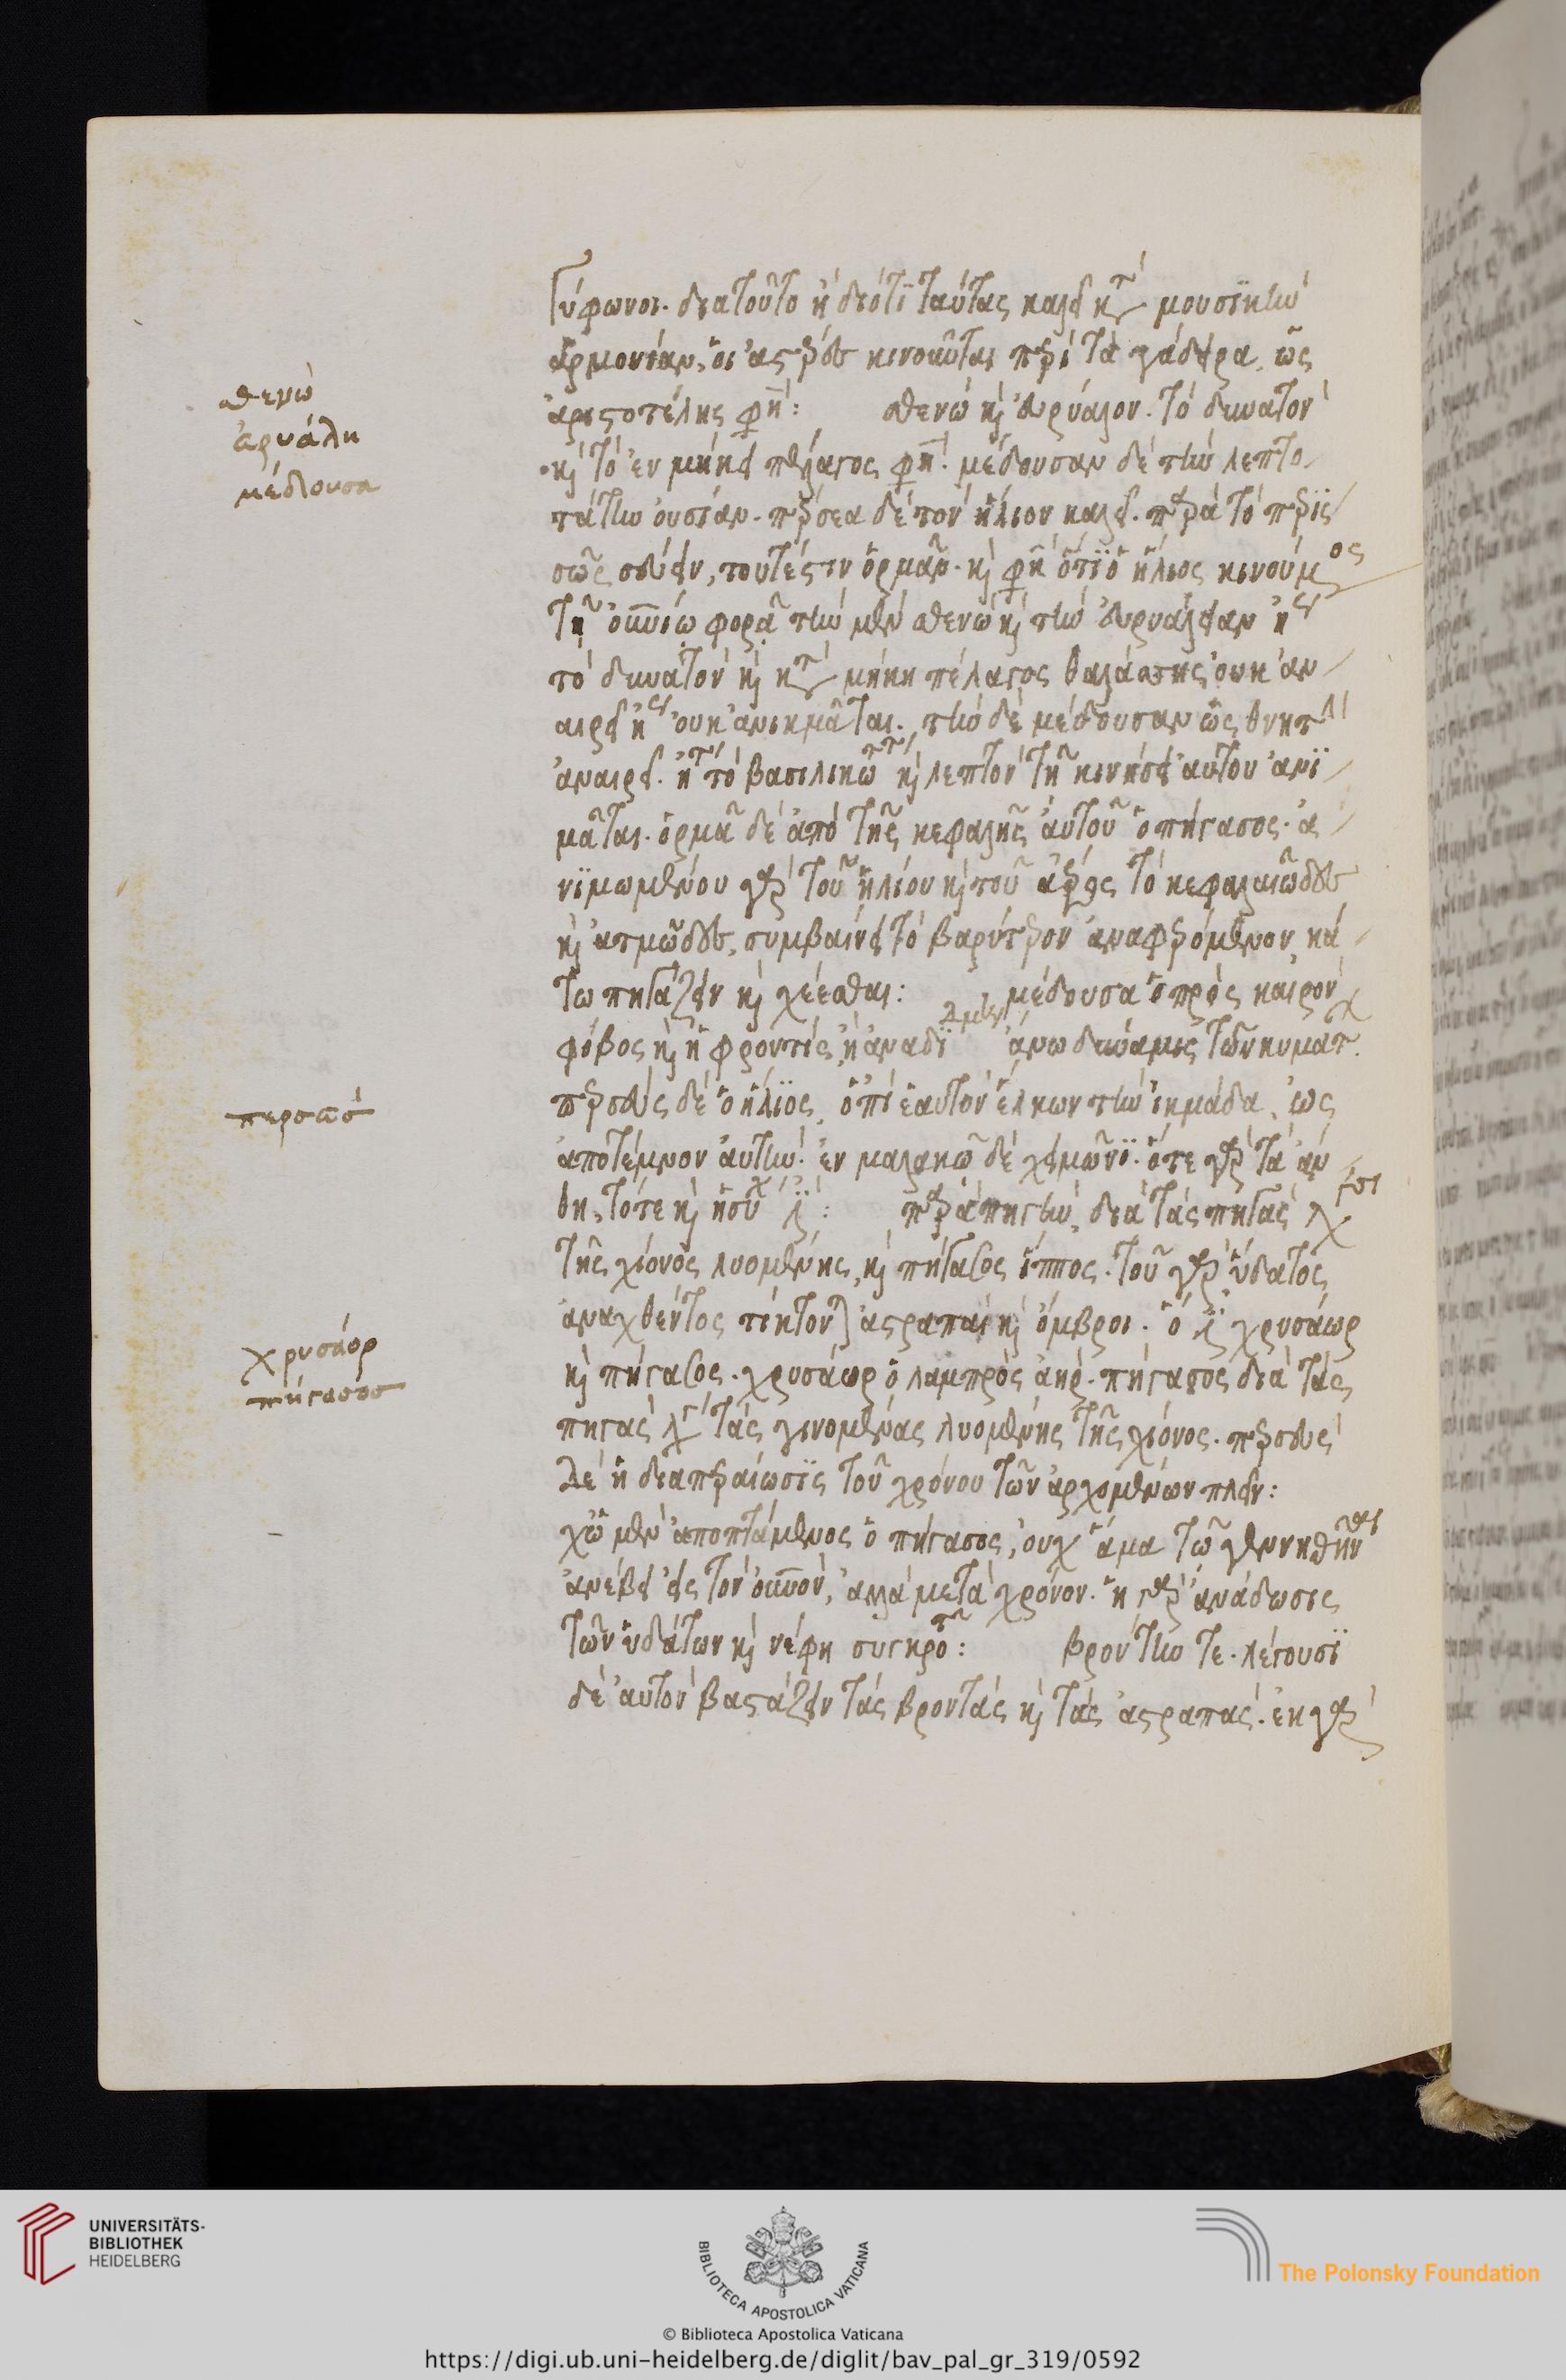 σθενώ
ἐυρυάλη
μέδουσα
περσεύς
χρυσάορ
πήγασος
γύφωνοι. διατοῦτο ἢ διότι ταύτας καλεῖ κατὰ μουσικὴν
ἁρμονίαν, οἱ ἀστέρες κινοῦνται περὶ τὰ
ἀριστοτέλης φησί: σθενώ καὶ ἐυρυάλον. τὸ δυνατὸν
καὶ τὸ ἐν μήκει πέλαγος φησί. μέδουσαν δὲ τὴν λεπτο
τάτην οὐσίαν. περσέα δὲ τὸν ἥλιον καλεῖ. παρὰ τὸ περις
σῶς σεύειν, τουτέστιν ὁρμᾶν. καὶ φησὶ ὅτι ὁ ἥλιος κινούμενος
τῇ οὐρανίῳ φορᾷ τὴν μὲν σθενὼ καὶ τὴν ἐυρυάλειαν ἤγουν
τὸ δυνατὸν καὶ κατὰ μήκη πέλαγος θαλάσσης οὐκ ἀν
αιρεῖ ἤγουν οὐκ ἀνικμᾶται. τὴν δὲ μέδουσαν ὡς θνητὴν
ἀναιρεῖ. ἤτοι τὸ βασιλικώτατον καὶ λεπτὸν τῇ κινήσει αὐτοῦ ἀνι
μᾶται. ὁρμᾷ δὲ ἀπὸ τῆς κεφαλῆς αὐτοῦ ὁ πήγασος. ἀ
νιμωμένου γὰρ τοῦ ἡλίου καὶ τοῦ ἀέρος τὸ κεφαλαιῶδες
καὶ ἀτμῶδες, συμβαίνει τὸ βαρύτερον ἀναφερόμενον, κά
τω πηγάζειν καὶ χέεσθαι: μέδουσα ὁ πρὸς καιρὸν
φόβος καὶ ἡ φροντίς, ἢ ἀναδι ἄνω δύναμις τῶν κυμάτων.
περσεὺς δὲ ὁ ἥλιος, ὁ ἐπὶ ἑαυτὸν ἕλκων τὴν ἰκμάδα, ὡς
ἀποτέμνον αὐτήν. ἐν μαλακῷ δὲ λειμῶνι. ὅτε γὰρ τὰ ἄν
θη, τότε καὶ : παρὰ πηγὴν, διὰ τὰς πηγὰς
τῆς χιόνος λυομένης, καὶ πήγασος ἵππος. τοῦ γὰρ ὕδατος
ἀναχθέντος τίκτονται ἀστραπαὶ καὶ ὄμβροι. ὅ ἐστι χρυσάωρ
καὶ πήγασος. χρυσάωρ ὁ λαμπρὸς ἀήρ. πήγασος διὰ τὰς
πηγὰς λέγει τὰς γινομένας λυομένης τῆς χιόνος. περσεὺς
δὲ ἡ διαπεραίωσις τοῦ χρόνου τῶν ἀρχομένων πλεῖν:
χὢ μὲν ἀποπτάμενος ὁ πήγασος, οὐχ ἅμα τῷ γεννηθῆναι
ἀνέβη εἰς τὸν οὐρανόν, ἀλλὰ μετὰ χρόνον. ἡ γὰρ ἀνάδωσις
τῶν ὑδάτων καὶ νέφη συγκροτεῖ: βροντήν τε. λέγουσι
δὲ αὐτὸν βαστάζειν τὰς βροντὰς καὶ τὰς ἀστραπάς. ἐκ γὰρ
UNIVERSITÄTS-
BIBLIOTHEK
HEIDELBERG
BIBLIOTECA APOSTOLICA VATICANA
The Polonsky Foundation
© Biblioteca Apostolica Vaticana
https://digi.ub.uni-heidelberg.de/diglit/bav_pal_gr_319/0592